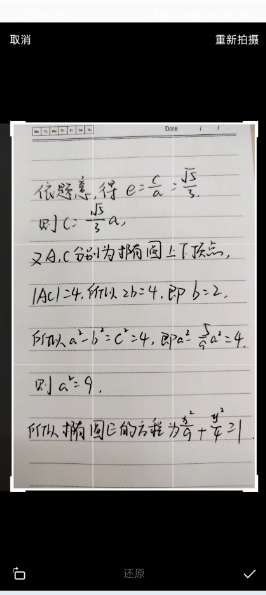 取消
重新拍摄
Mo Tu We Th Fr Sa Su
Date / /
依题意,得 e=c/a=√5/3.
则 c=√5/3 a,
又A,C分别为椭圆上下顶点,
|AC|=4,所以 2b=4,即 b=2,
所以 a²-b²=c²=4,即a²-5/9a²=4.
则 a²=9.
所以椭圆E的方程为x²/9+y²/4=1
还原